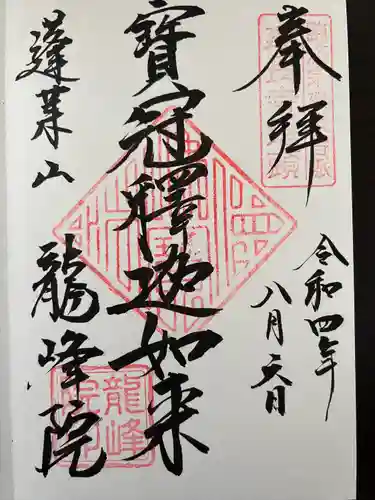 奉拝
令和四年
八月天日
寳冠釋迦如来
蓬莱山
龍峰院
龍峰
院印